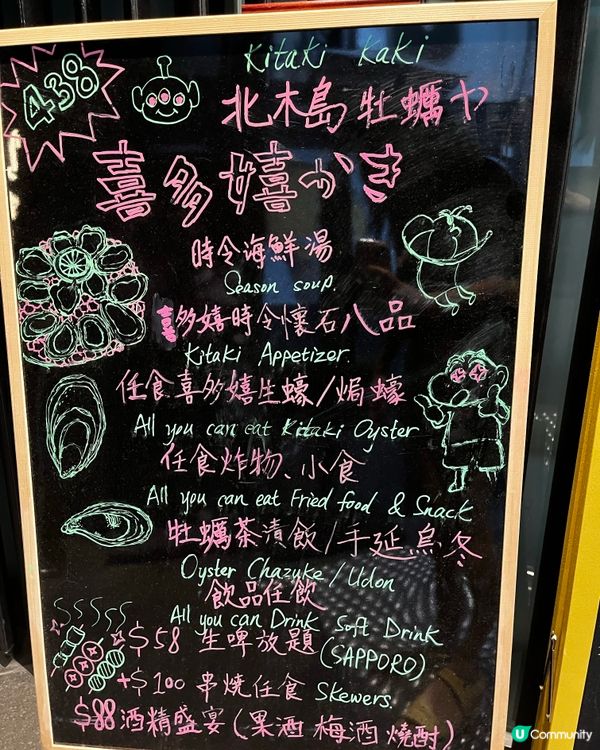 438
Kitaki Kaki
北木島牡蠣や
喜多嬉かき
時令海鮮湯
Season soup.
喜多嬉時令懷石八品
Kitaki Appetizer.
任食喜多嬉生蠔/焗蠔
All you can eat Kitaki Oyster
任食炸物、小食
All you can eat Fried food & Snack
牡蠣茶漬飯/手延烏冬
Oyster Chazuke / Udon
飲品任飲
All you can Drink Soft Drink
$58 生啤放題 (SAPPORO)
+$100 串燒任食 Skewers.
$88 酒精盛宴 (果酒 梅酒 燒酎)
U Community